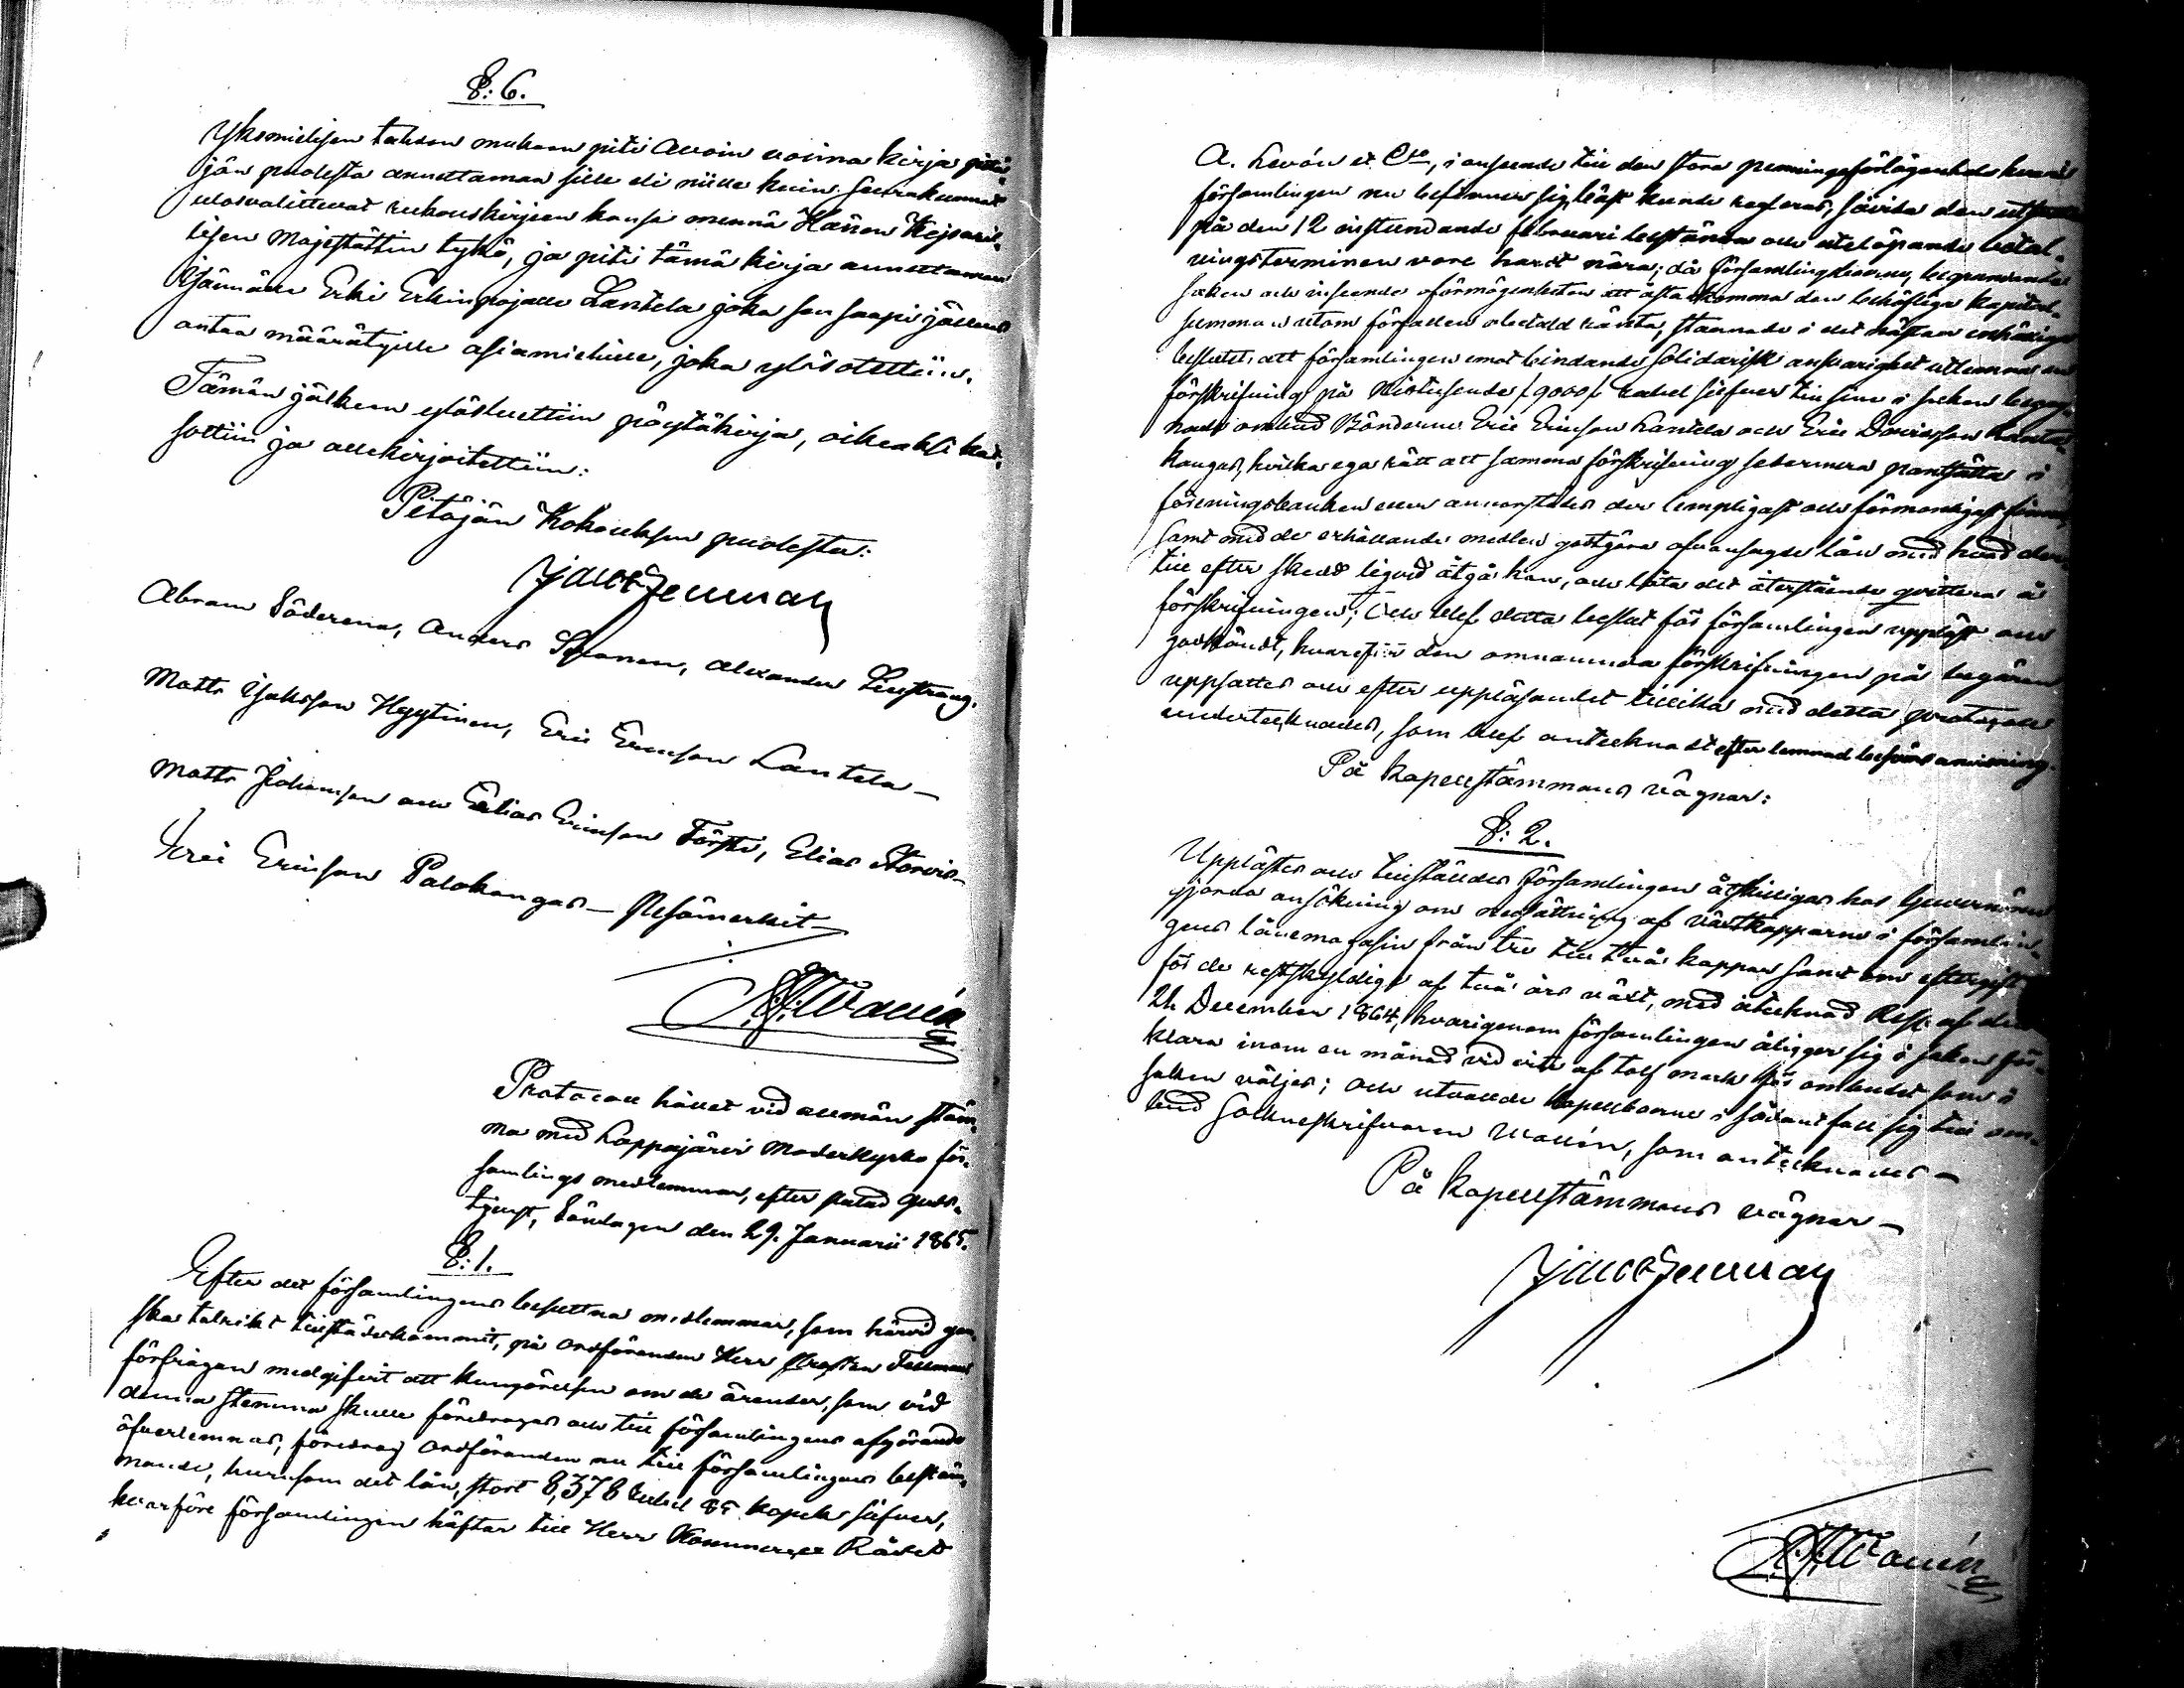 §: 6.
Yksmielisen tahdon mukaan piti Avoin voima kirja pitä-
jän puolesta annettaman sille eli niille kuin Seurakunnat
ulosvalittevat rukouskirjeen kansa mennä Hänen Kejsaril-
lisen Majestättin tykö, ja piti tämä kirja annettaman
Isännälle Erki Erkinpojalle Lantela joka sen saapi jällens
antaa määrätyille asiamiehille, joka ylösotettiin.
Tämän jälkeen ylösluettiin pöytäkirja, oikeaksi kat-
sottiin ja allekirjoitettiin:
Pitäjän Kokouksen puolesta:
Jacob Fellman
Abram Söderena, Anders Sponen, Alexander Lustrang,
Matts Isaksson Hyytinen, Eric Ericsson Lantela –
Matts Johansson och Elias Ericsson Försti, Elias
Eric Ericsson Palokangas – Puämerkit –
Wallén
Protocoll hållet vid allmän stäm-
ma med Lappajärvi Moderkyrko för-
samlings medlemmar, efter slutad guds-
tjenst, Söndagen den 29. Januarii 1865.
§: 1.
Efter det församlingens besuttna medlemmar, som härvid gan-
ska talrikt tillstädeskommit, på Ordföranden Herr Prosten Fellmans
förfrågan medgifvit att kungörelsen om de ärender, som vid
denna stemma skulle föredragas och till församlingens afgörande
öfverlemnas, föredrog Ordföranden nu till församlingens bestäm-
mande, hurusom det lån, stort 8,378 rubel 85 kopek silfver,
hvarföre församlingen häftar till Herr Kommerse Rådet
A. Levón et Co, i anseende till den stora penningeförlägenhet hvari
församlingen nu befinner sig, bäst kunde regleras, såvida den
på den 12 instundande februari bestämda och utelöpande betal-
ningsterminen vore hardt nära; då församlingsboerne, begrundande
saken och inseende oförmögenheten att åstadkomma den behöfliga kapital-
summan utom förfallen obetald ränta, stannade i det nästan enhälliga
beslutet, att församlingen emot bindande solidarisk ansvarighet utlemnar en
förskrifning på Niotusende /9000/ rubel silfver till sine i saken
ombud Bönderne Eric Ericsson Lantela och Eric Davidsson
kangas, hvilka ega rätt att samma förskrifning sedermera pantsätta i
föreningsbanken eller annorstädes der lämpligast och förmonligast finnes,
samt med de erhållande medlen godtgöra ofvansagde lån med hvad der-
till efter skedd liqvid åtgå kan, och låta det återstående qvittera å
förskrifningen; Och blef detta beslut för församlingen uppläst och
godkändt, hvarefter den omnämnda förskrifningen på begäran
uppsattes och efter uppläsandet tillika med detta protogoll
undertecknades, som blef antecknadt efter lemnad besvärs anvisning.
På kapellstämmans vägnar:
§: 2.
Upplästes och tillställdes församlingen åtskilligas hos Guvernören
gjorda ansökning om nedsättning af växtkapparne i församlin-
gens lånemagasin från tre till två kappar samt om eftergift
för de restskyldige af två års växt, med åtecknad Resl. af den
21 December 1864, hvarigenom församlingen åligger sig i saken för-
klara inom en månad vid vite af tolf mark för ombudet som i
saken väljes; och utvalde kapellboerne i sådant fall sig till om-
bud Sockneskrifvaren Wallén, som antecknades –
På kapellstämmans vägnar –
Jacob Fellman
Wallén